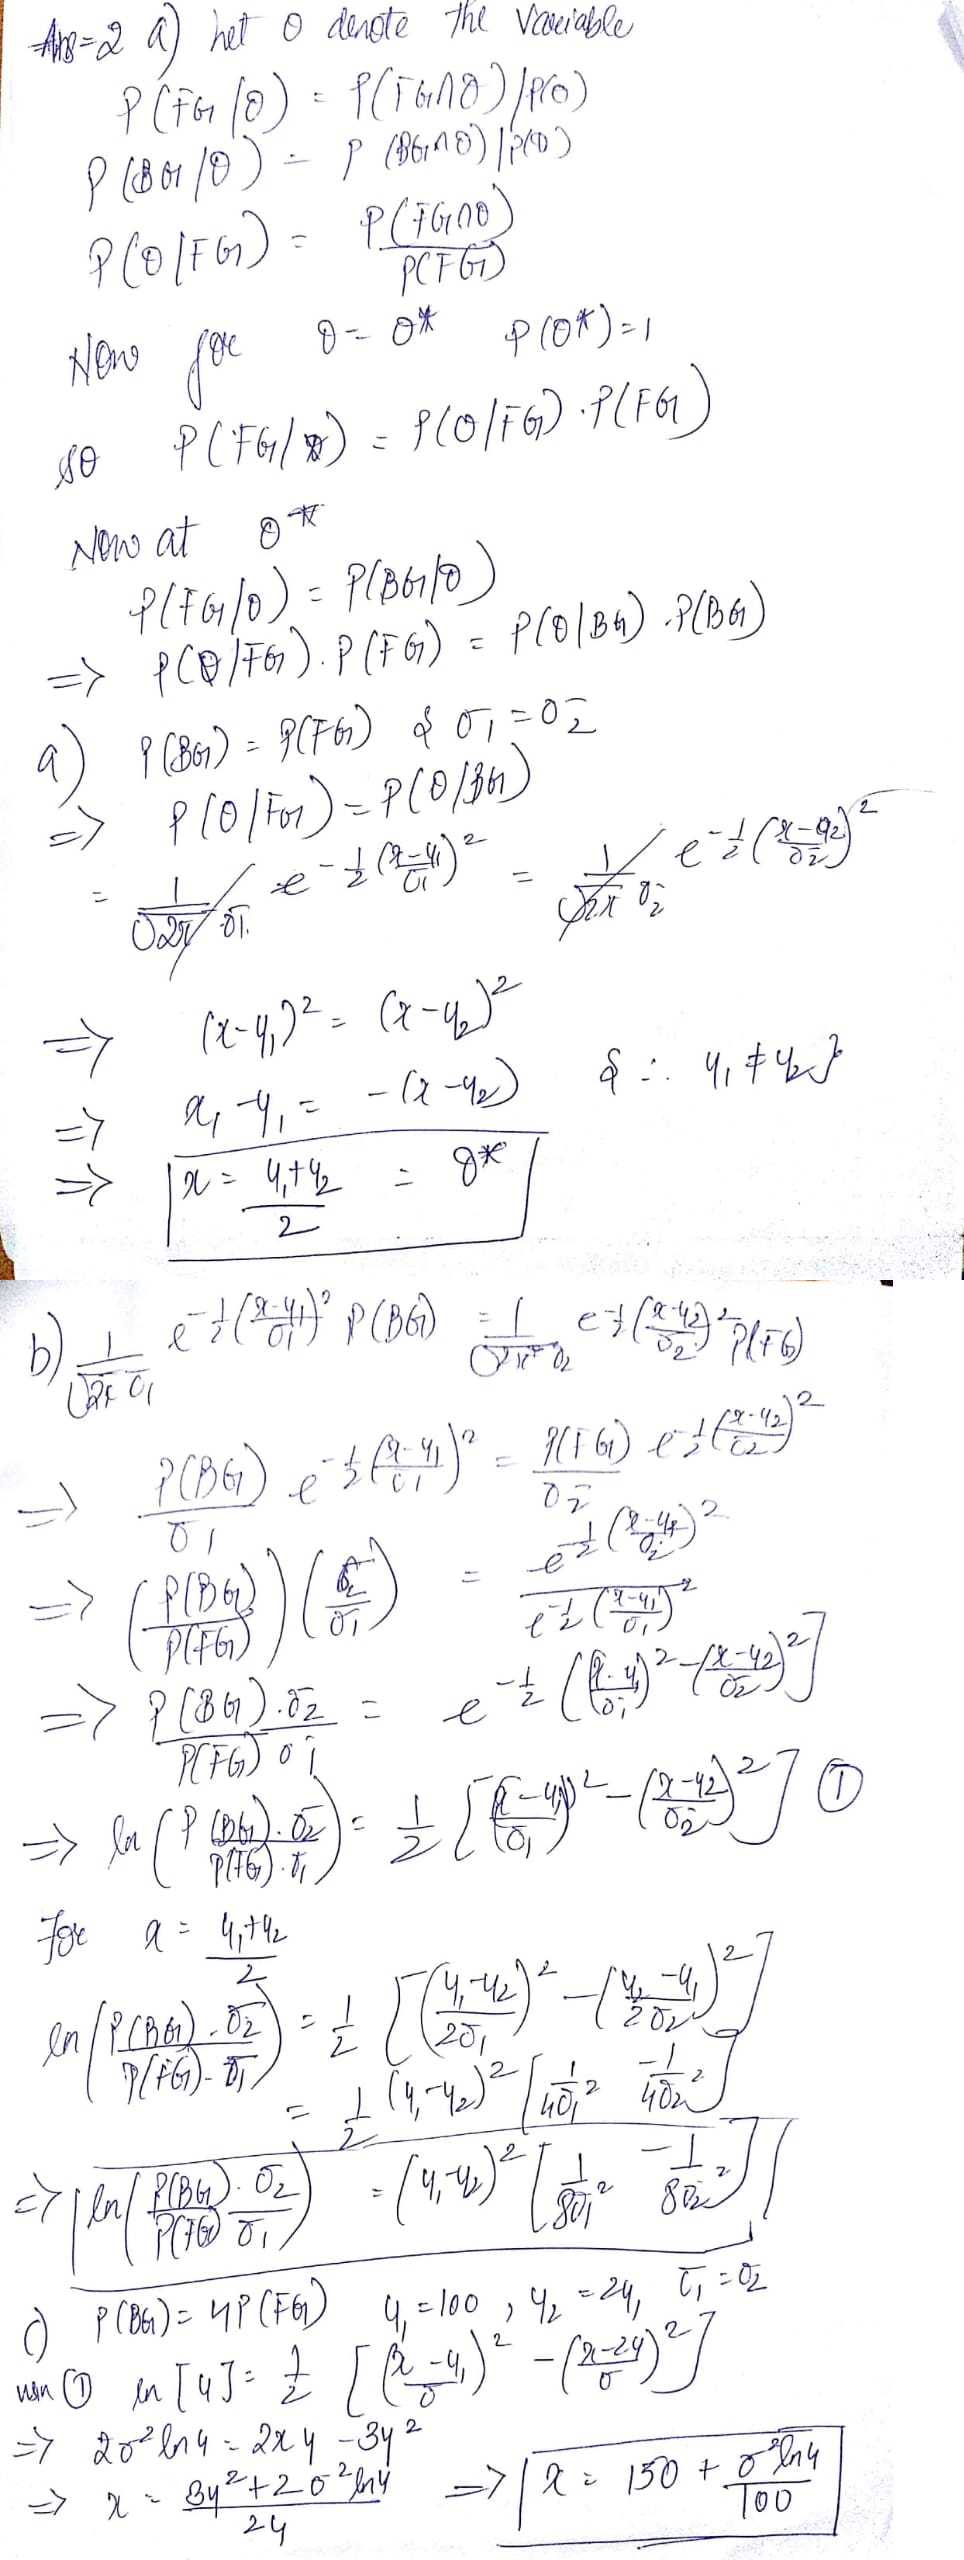 Ans=2 a) Let θ denote the variable
P(FG/θ) = P(FG∩θ)/P(θ)
P(BG/θ) = P(BG∩θ)/P(θ)
P(θ/FG) = P(FG∩θ)/P(FG)
Now for θ = θ* P(θ*)=1
so P(FG/θ) = P(θ/FG).P(FG)
Now at θ*
P(FG/θ) = P(BG/θ)
=> P(θ/FG).P(FG) = P(θ/BG).P(BG)
a) P(BG) = P(FG) & σ₁=σ₂
=> P(θ/FG) = P(θ/BG)
= 1/(√2π σ₁) e^(-1/2 ((x-μ₁)/σ₁)²) = 1/(√2π σ₂) e^(-1/2 ((x-μ₂)/σ₂)²)
=> (x-μ₁)² = (x-μ₂)²
=> x₁-μ₁ = -(x-μ₂) & ∴ μ₁ ≠ μ₂}
=> x = (μ₁+μ₂)/2 = θ*
b) 1/(√2π σ₁) e^(-1/2 ((x-μ₁)/σ₁)²) P(BG) = 1/(√2π σ₂) e^(-1/2 ((x-μ₂)/σ₂)²) P(FG)
=> P(BG)/σ₁ e^(-1/2 ((x-μ₁)/σ₁)²) = P(FG)/σ₂ e^(-1/2 ((x-μ₂)/σ₂)²)
=> (P(BG)/P(FG)) (σ₂/σ₁) = e^(-1/2 ((x-μ₂)/σ₂)²) / e^(-1/2 ((x-μ₁)/σ₁)²)
=> P(BG).σ₂ / P(FG) σ₁ = e^(-1/2 (((x-μ₁)/σ₁)² - ((x-μ₂)/σ₂)²])
=> ln (P(BG).σ₂ / P(FG).σ₁) = 1/2 [((x-μ₁)/σ₁)² - ((x-μ₂)/σ₂)²] ①
For x = (μ₁+μ₂)/2
ln (P(BG).σ₂ / P(FG).σ₁) = 1/2 [((μ₁-μ₂)/2σ₁)² - ((μ₂-μ₁)/2σ₂)²]
= 1/2 (μ₁-μ₂)² [1/4σ₁² - 1/4σ₂²]
=> ln (P(BG).σ₂ / P(FG) σ₁) = (μ₁-μ₂)² [1/8σ₁² - 1/8σ₂²]
c) P(BG) = 4P(FG) μ₁=100, μ₂=2μ, σ₁=σ₂
① ln[4] = 1/2 [((x-μ₁)/σ)² - ((x-2μ)/σ)²]
=> 2σ² ln 4 = 2xμ - 3μ²
=> x = (3μ²+2σ² ln 4)/2μ => x = 150 + σ² ln 4/100